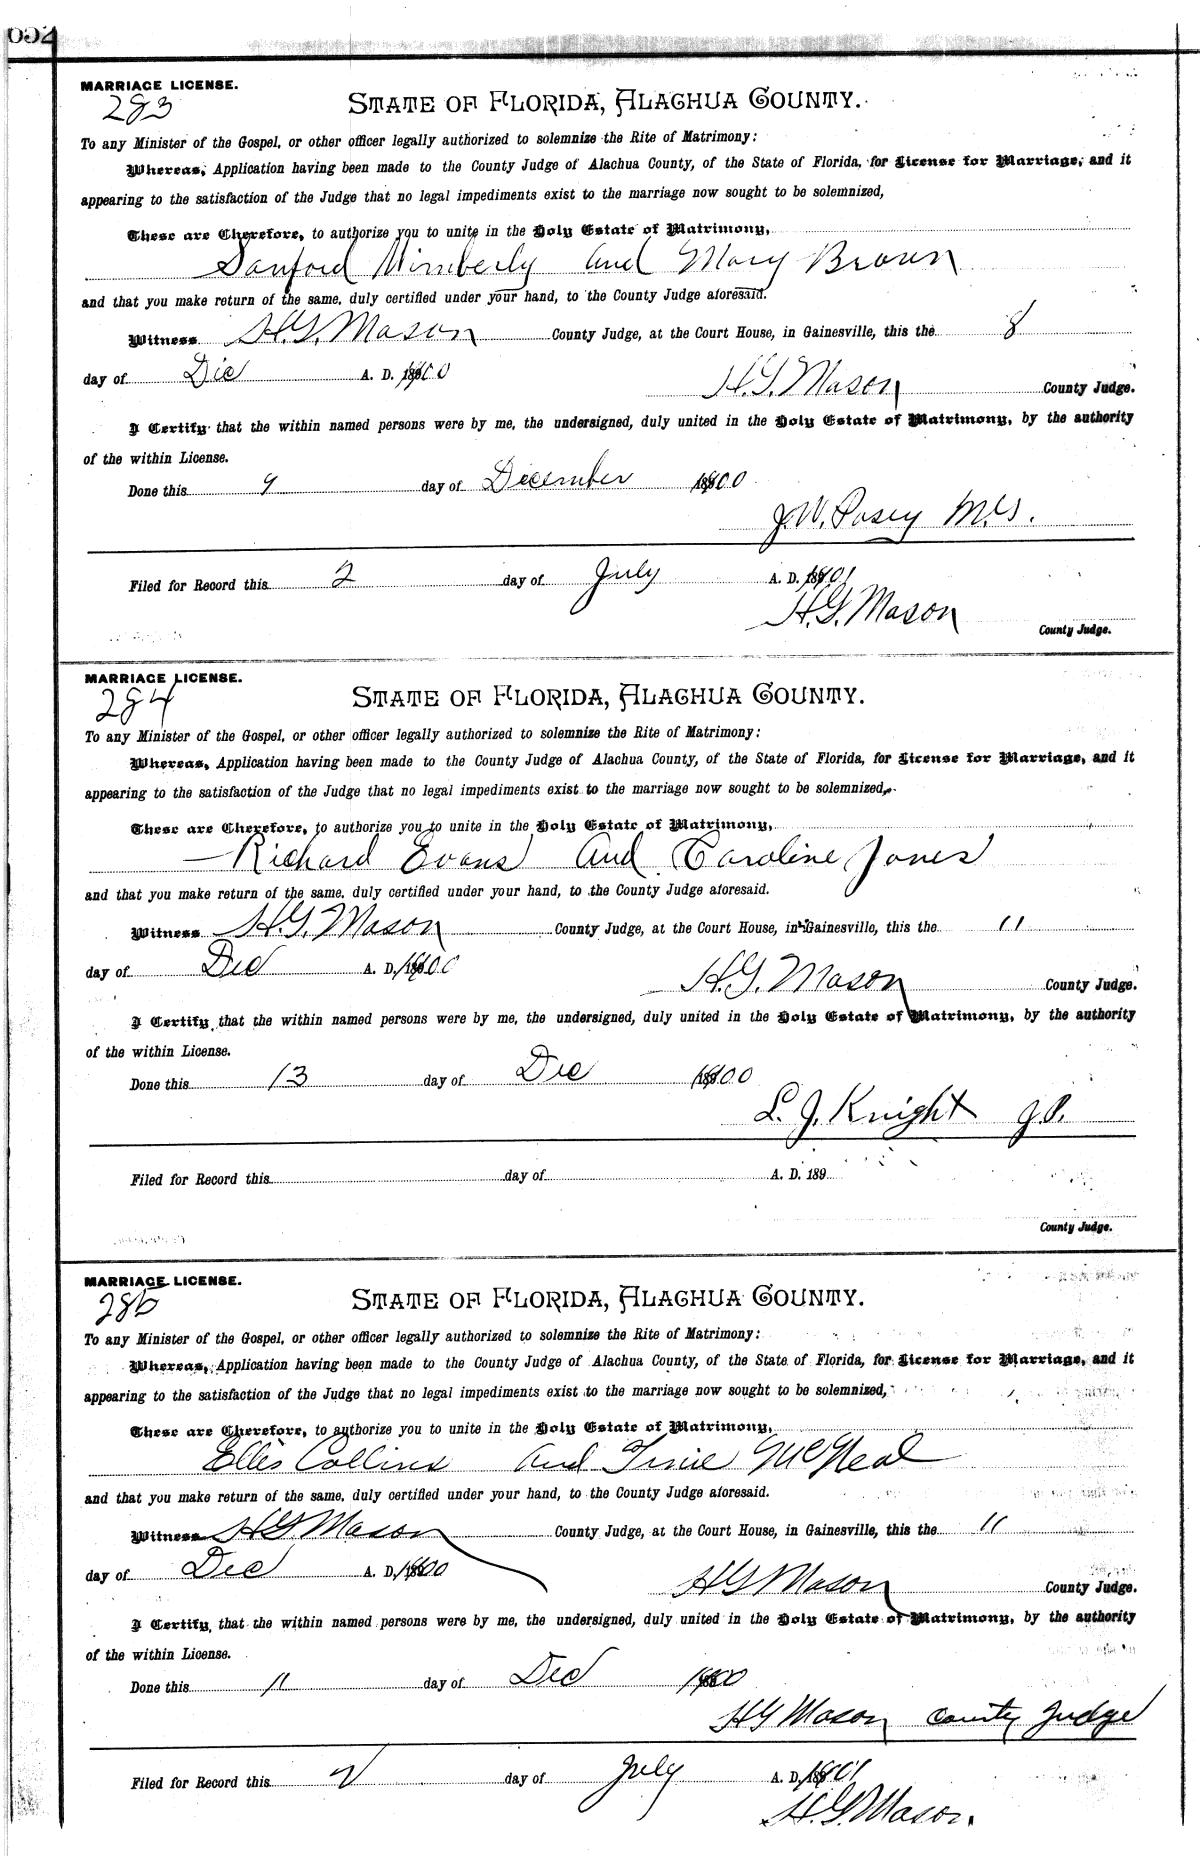 652
MARRIAGE LICENSE.
283
STATE OF FLORIDA, ALACHUA COUNTY.
To any Minister of the Gospel, or other officer legally authorized to solemnize the Rite of Matrimony:
Whereas, Application having been made to the County Judge of Alachua County, of the State of Florida, for License for Marriage, and it
appearing to the satisfaction of the Judge that no legal impediments exist to the marriage now sought to be solemnized,
These are Therefore, to authorize you to unite in the Holy Estate of Matrimony,
Sanford Wimberly and Mary Brown
and that you make return of the same, duly certified under your hand, to the County Judge aforesaid.
Witness H.G. Mason County Judge, at the Court House, in Gainesville, this the 8
day of Dec A. D. 1900 H.G. Mason County Judge.
I Certify that the within named persons were by me, the undersigned, duly united in the Holy Estate of Matrimony, by the authority
of the within License.
Done this 9 day of December 1900
J.W. Posey M.G.
Filed for Record this 2 day of July A. D. 1901
H.G. Mason
County Judge.
MARRIAGE LICENSE.
284
STATE OF FLORIDA, ALACHUA COUNTY.
To any Minister of the Gospel, or other officer legally authorized to solemnize the Rite of Matrimony:
Whereas, Application having been made to the County Judge of Alachua County, of the State of Florida, for License for Marriage, and it
appearing to the satisfaction of the Judge that no legal impediments exist to the marriage now sought to be solemnized,
These are Therefore, to authorize you to unite in the Holy Estate of Matrimony,
Richard Evans and Caroline Jones
and that you make return of the same, duly certified under your hand, to the County Judge aforesaid.
Witness H.G. Mason County Judge, at the Court House, in Gainesville, this the 11
day of Dec A. D. 1900 H.G. Mason County Judge.
I Certify, that the within named persons were by me, the undersigned, duly united in the Holy Estate of Matrimony, by the authority
of the within License.
Done this 13 day of Dec 1900
L. J. Knight J.P.
Filed for Record this day of A. D. 189
County Judge.
MARRIAGE LICENSE.
285
STATE OF FLORIDA, ALACHUA COUNTY.
To any Minister of the Gospel, or other officer legally authorized to solemnize the Rite of Matrimony:
Whereas, Application having been made to the County Judge of Alachua County, of the State of Florida, for License for Marriage, and it
appearing to the satisfaction of the Judge that no legal impediments exist to the marriage now sought to be solemnized,
These are Therefore, to authorize you to unite in the Holy Estate of Matrimony,
Ellis Collins and Tinie McNeal
and that you make return of the same, duly certified under your hand, to the County Judge aforesaid.
Witness H G Mason County Judge, at the Court House, in Gainesville, this the 11
day of Dec A. D. 1900 H G Mason County Judge.
I Certify, that the within named persons were by me, the undersigned, duly united in the Holy Estate of Matrimony, by the authority
of the within License.
Done this 11 day of Dec 1900
H G Mason County Judge
Filed for Record this 2 day of July A. D. 1901
H.G. Mason.